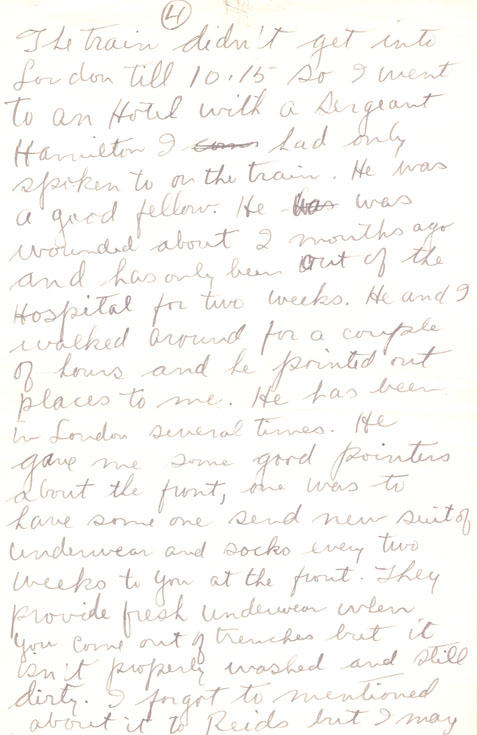 4
The train didn't get into
London till 10.15 so I went
to an Hotel with a Sergeant
Hamilton I had only
spoken to on the train. He was
a good fellow. He has was
wounded about 2 months ago
and has only been out of the
Hospital for two weeks. He and I
walked around for a couple
of hours and he pointed out
places to me. He has been
in London several times. He
gave me some good pointers
about the front, one was to
have some one send new suit of
underwear and socks every two
weeks to you at the front. They
provide fresh underwear when
you come out of trenches but it
isn't properly washed and still
dirty. I forgot to mentioned
about it to Reids but I may